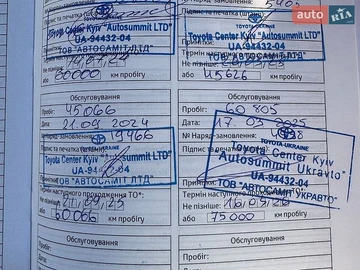 auto RIA
Підпис та печатка
Toyota Center Kyiv "Autosummit LTD"
UA-94432-04
ТОВ "АВТОСАМІТ ЛТД"
або 60000 км пробігу
5405
TOYOTA-UKRAINE
Toyota Center Kyiv "Autosummit LTD"
UA-94432-04
Примітки:
ТОВ "АВТОСАМІТ ЛТД"
Не пізніше:
або 45626 км пробігу
Обслуговування
Пробіг: 45066
Дата: 21.09.2024
№ Наряд-замовлення: 19466
Підпис та печатка
Toyota Center Kyiv "Autosummit LTD"
UA-94432-04
Примітки:
ТОВ "АВТОСАМІТ ЛТД"
Термін наступного проходження ТО*:
Не пізніше: 21.09.25
або 60066 км пробігу
Обслуговування
Пробіг: 60 805
Дата: 17 03 2025
№ Наряд-замовлення:
Підпис та печатка
TOYOTA-UKRAINE
Toyota Center Kyiv
"Autosummit Ukravto"
UA-94432-04
Примітки:
ТОВ "АВТОСАМІТ УКРАВТО"
Термін наступного
Не пізніше: 16.03.26
або 75000 км пробігу
Обслуговування
Пробіг:
Дата:
№ Наряд-замовлення:
Обслуговування
Пробіг:
Дата:
№ Наряд-замовлення: